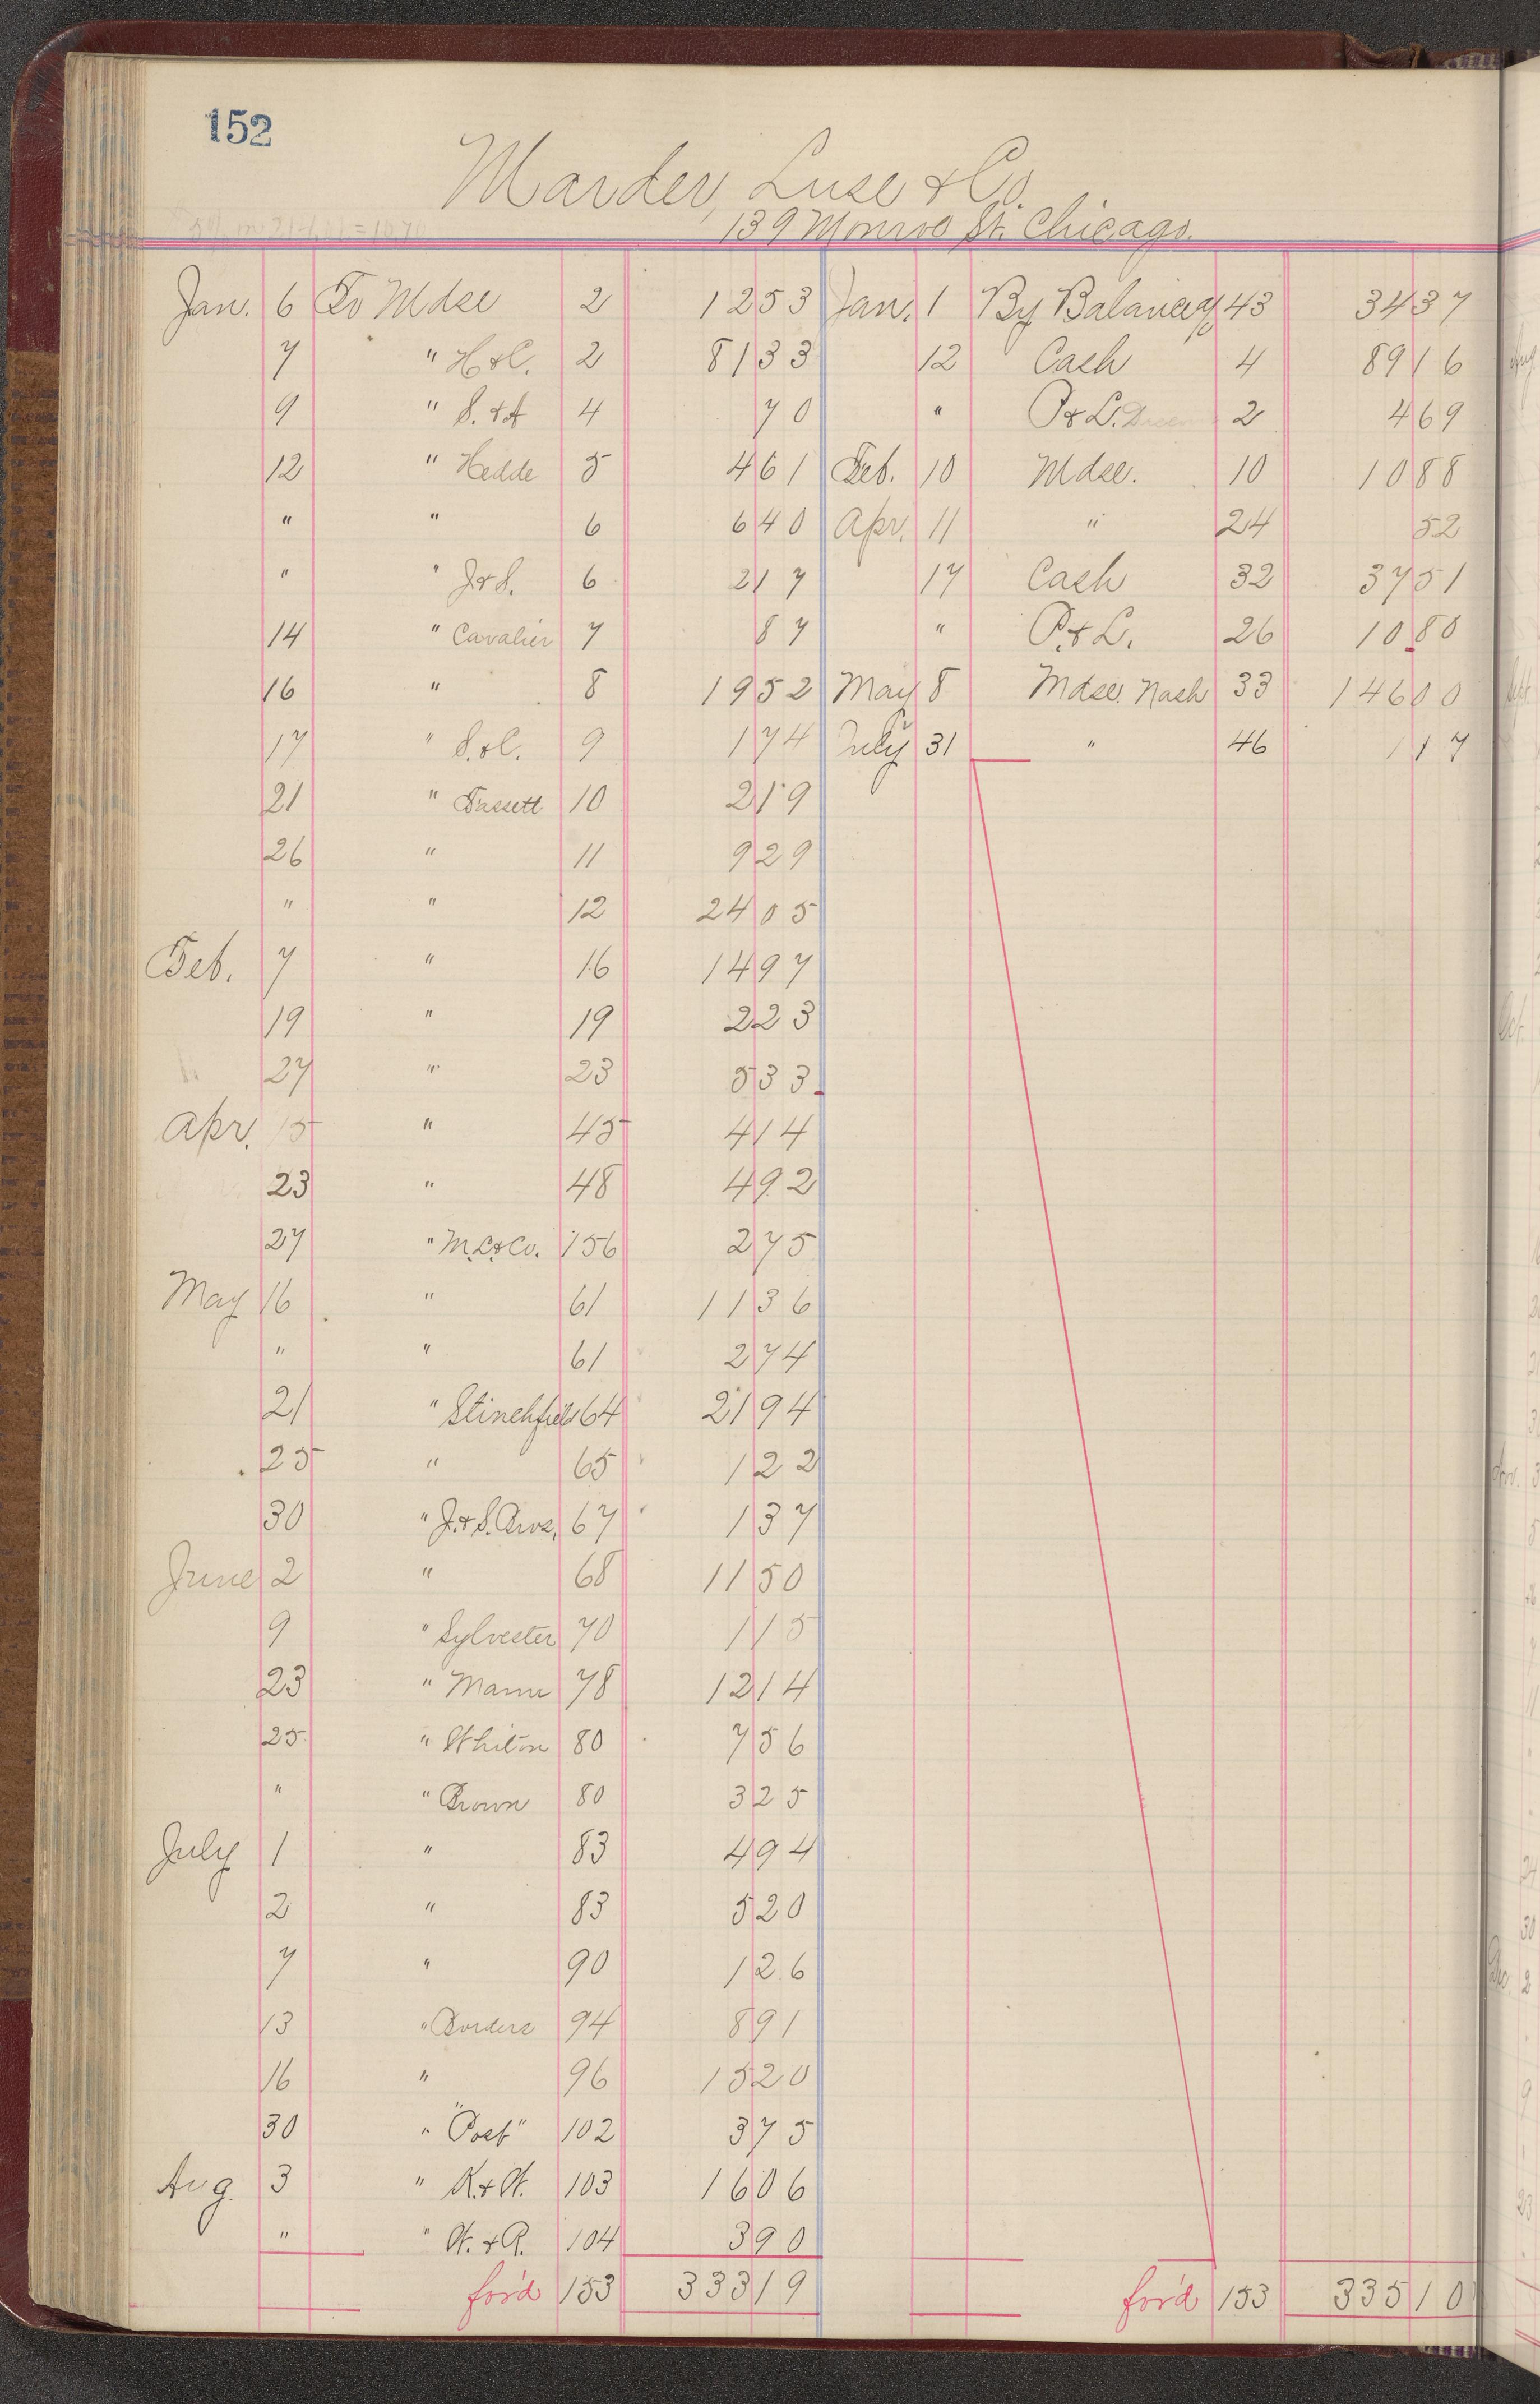 152
Marder, Luse & Co.
139 Monroe St. Chicago.
Jan. 6 To Mdse 2 12 53 Jan. 1 By Balance 43 34 37
7 " H&C. 2 81 33 12 Cash 4 89 16
9 " S. & A 4 70 " P & L. 2 4 69
12 " Hedde 5 4 61 Feb. 10 Mdse. 10 10 88
" " 6 6 40 Apr. 11 " 24 52
" " J & S. 6 2 17 17 Cash 32 37 51
14 " Cavalier 7 87 " P. & L. 26 10 80
16 " 8 19 52 May 8 Mdse. Nash 33 146 00
17 " S. & C. 9 1 74 July 31 " 46 1 17
21 " Fassett 10 2 19
26 " 11 9 29
" " 12 24 05
Feb. 7 " 16 14 97
19 " 19 2 23
27 " 23 5 33
Apr. 15 " 45 4 14
23 " 48 4 92
27 " M. L. & Co. 156 2 75
May 16 " 61 11 36
" " 61 2 74
21 " Stinchfield 64 21 94
25 " 65 1 22
30 " J. & S. Bros. 67 1 37
June 2 " 68 11 50
9 " Sylvester 70 1 15
23 " Mann 78 12 14
25 " Whiton 80 7 56
" " Brown 80 3 25
July 1 " 83 4 94
2 " 83 5 20
7 " 90 1 26
13 " Borders 94 8 91
16 " 96 15 20
30 " "Post" 102 3 75
Aug. 3 " K. & W. 103 16 06
" " W. & R. 104 3 90
for'd 153 333 19 for'd 153 335 10